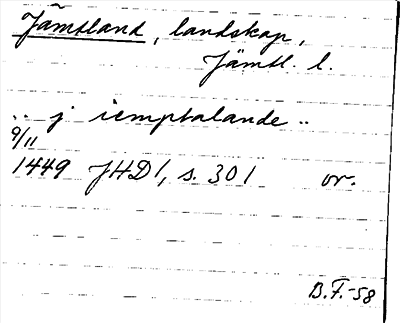 Jämtland, landskap,
Jämtl. l.
.. j iemptalande ..
9/11
1449 JHD 1, s. 301 or.
B.F.-58